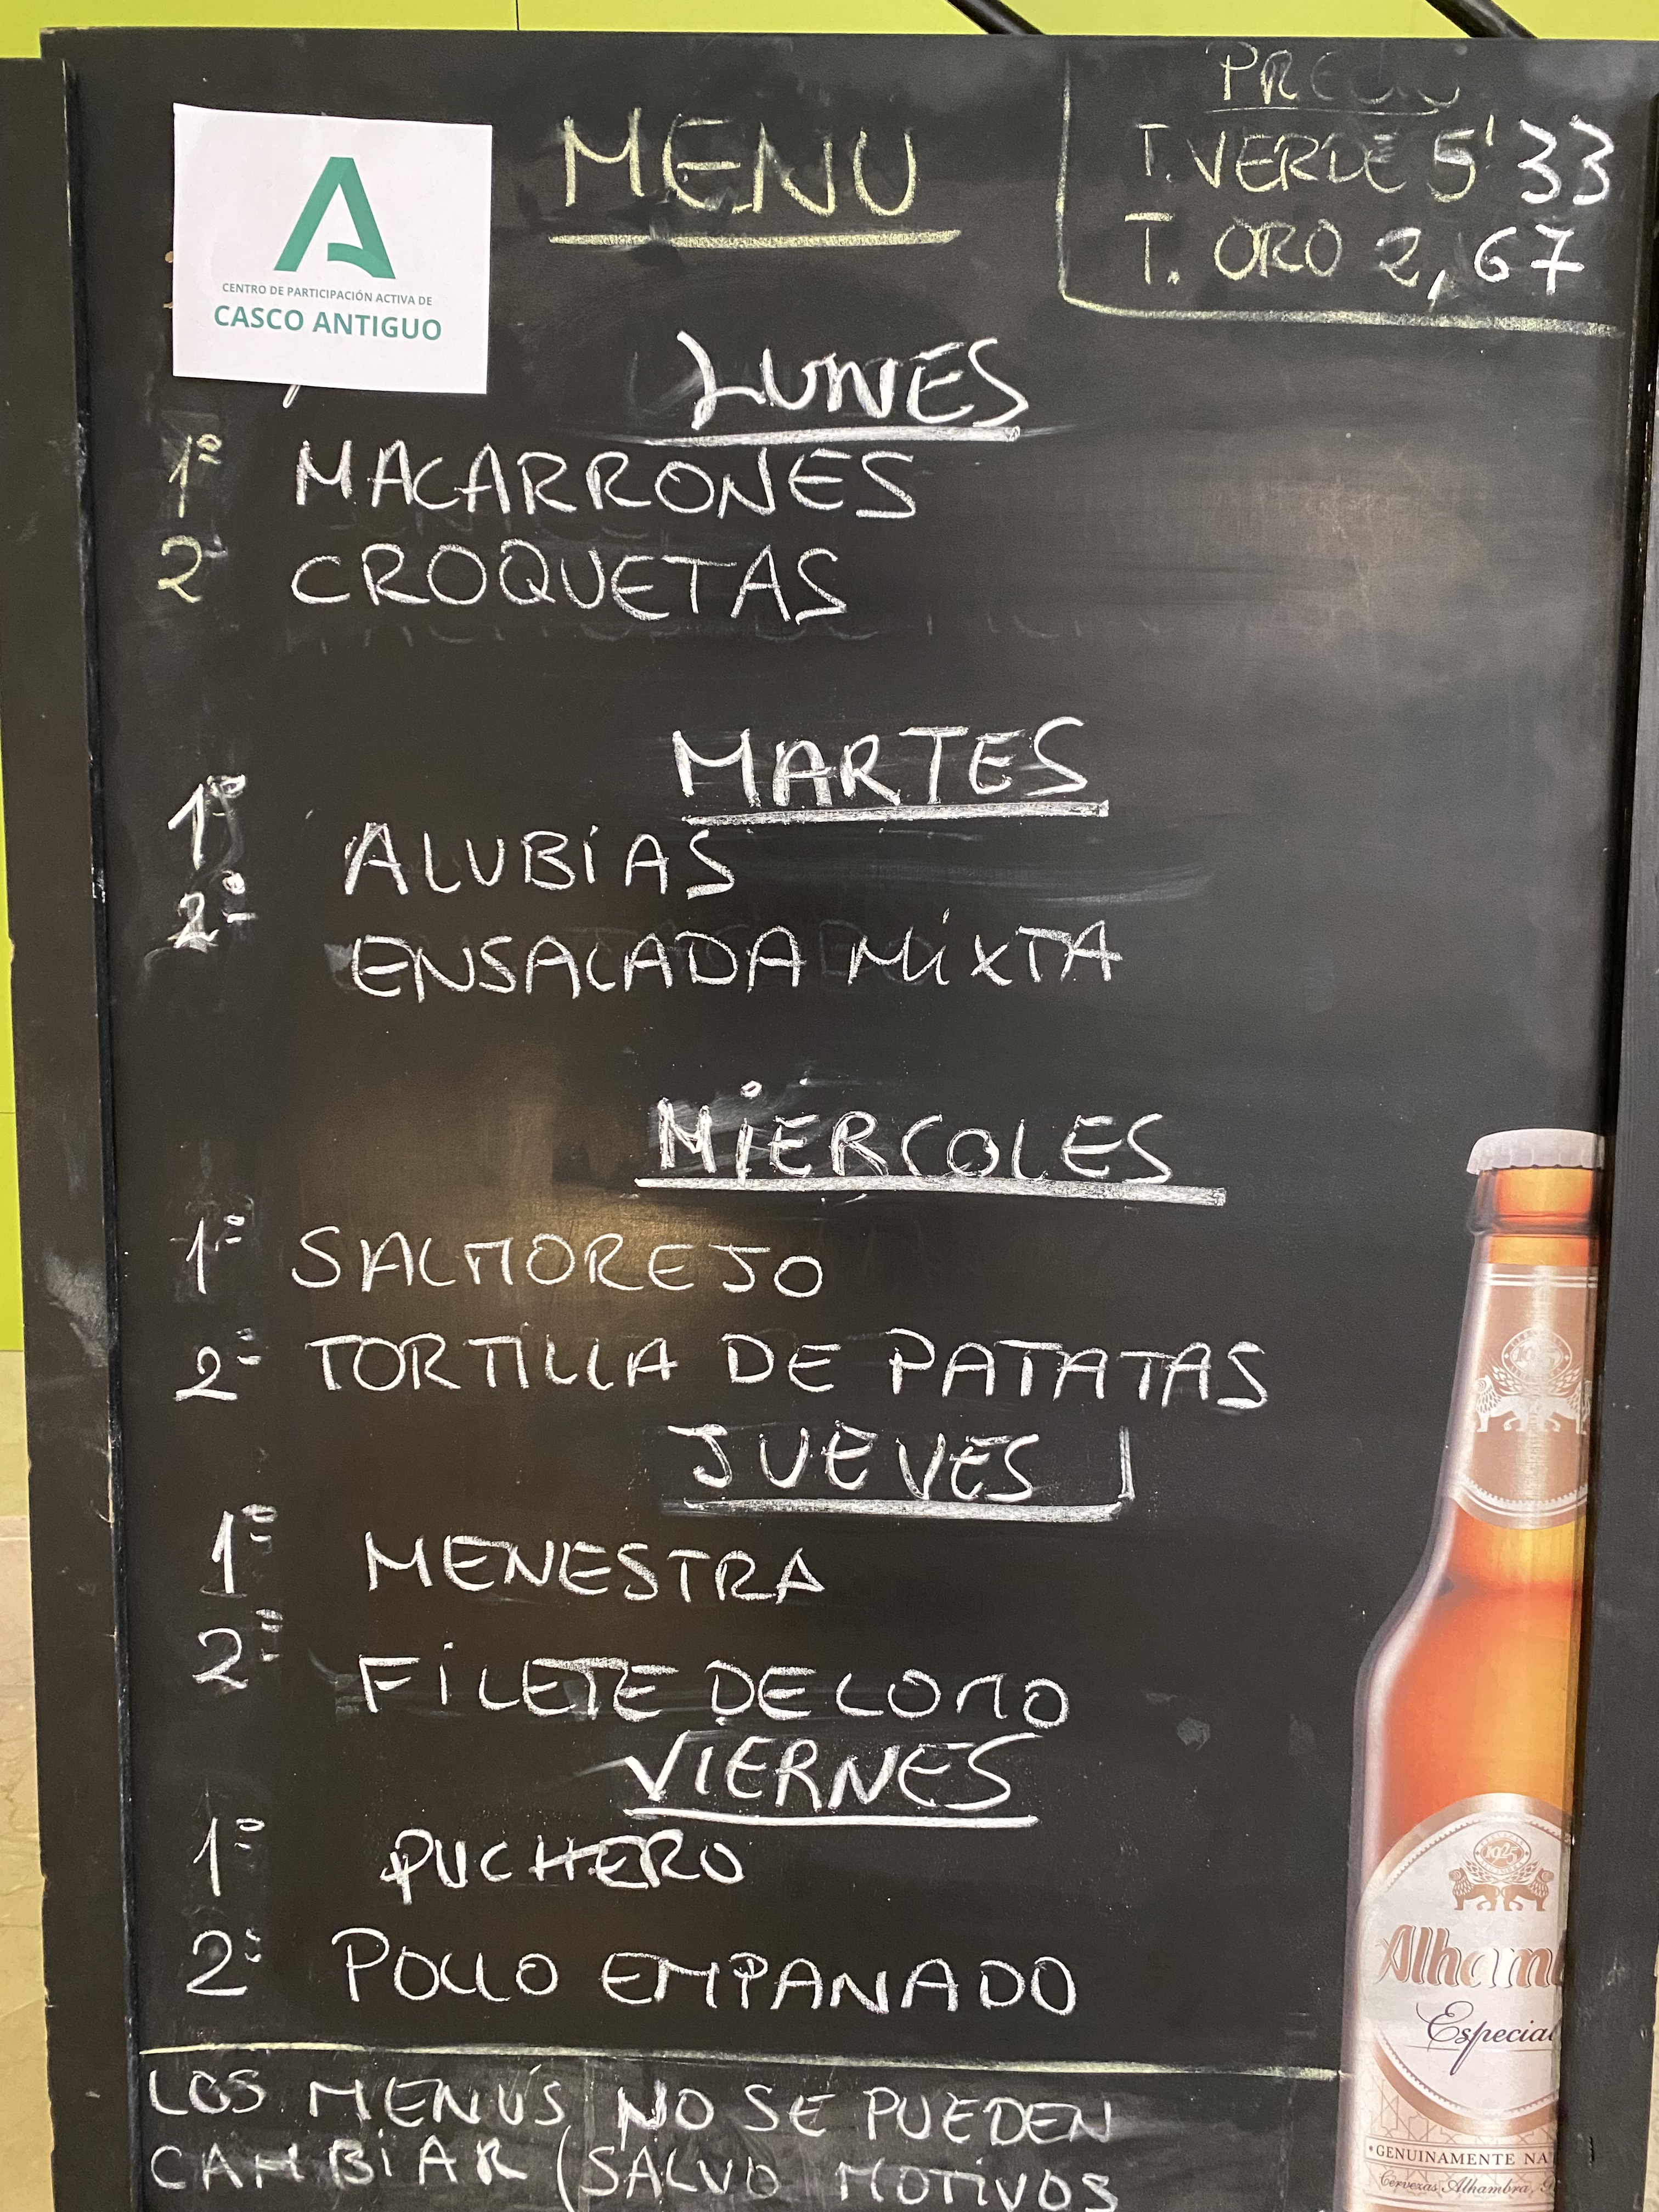 PRECIO
MENU
T. VERDE 5'33
T. ORO 2,67
CENTRO DE PARTICIPACIÓN ACTIVA DE
CASCO ANTIGUO
LUNES
1º MACARRONES
2º CROQUETAS
MARTES
1º ALUBIAS
2º ENSALADA MIXTA
MIERCOLES
1º SALMOREJO
2º TORTILLA DE PATATAS
JUEVES
1º MENESTRA
2º FILETE DE LOMO
VIERNES
1º PUCHERO
2º POLLO EMPANADO
LOS MENÚS NO SE PUEDEN
CAMBIAR (SALVO MOTIVOS
1925
Alham
Especial
GENUINAMENTE NA
Cervezas Alhambra,